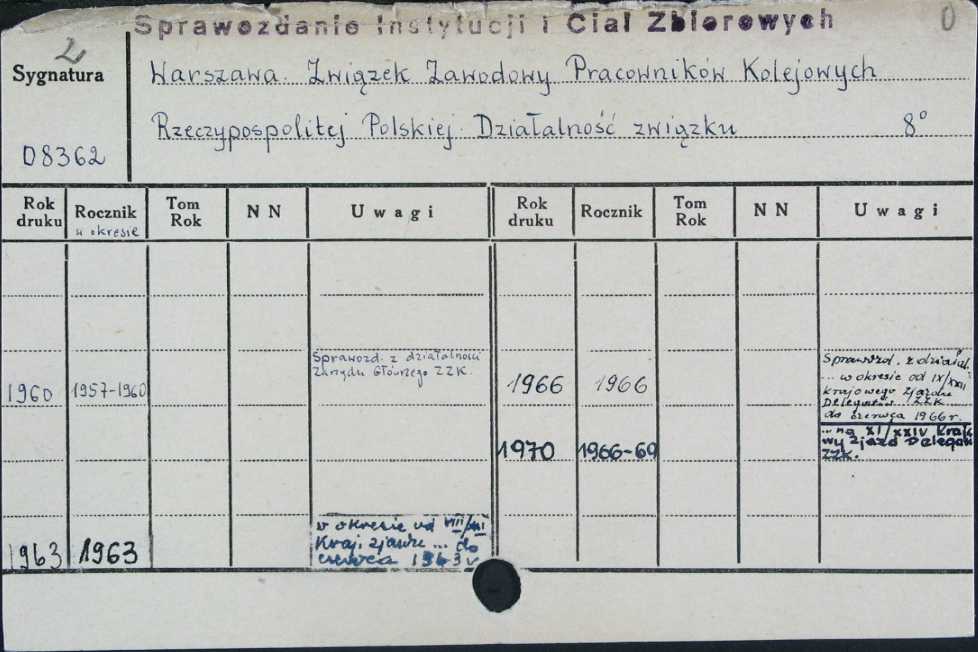 Sprawozdanie Instytucji i Ciał Zbiorowych
0
2
Sygnatura
08362
Warszawa. Związek Zawodowy Pracowników Kolejowych
Rzeczypospolitej Polskiej. Działalność związku 8°
Rok druku Rocznik w okresie Tom Rok NN Uwagi Rok druku Rocznik Tom Rok NN Uwagi
1960 1957-1960 Sprawozd. z działalności
Zarządu Głównego ZZK.
1966 1966 Sprawozd. z działal.
... w okresie od IX/XXII
Krajowego Zjazdu
Delegatów ZZK
do czerwca 1966 r.
1970 1966-69 ... na XI/XXIV Krajo
wy Zjazd Delegat
ZZK.
1963 1963 w okresie od VIII/XXI
Kraj. zjazdu ... do
czerwca 1963 r